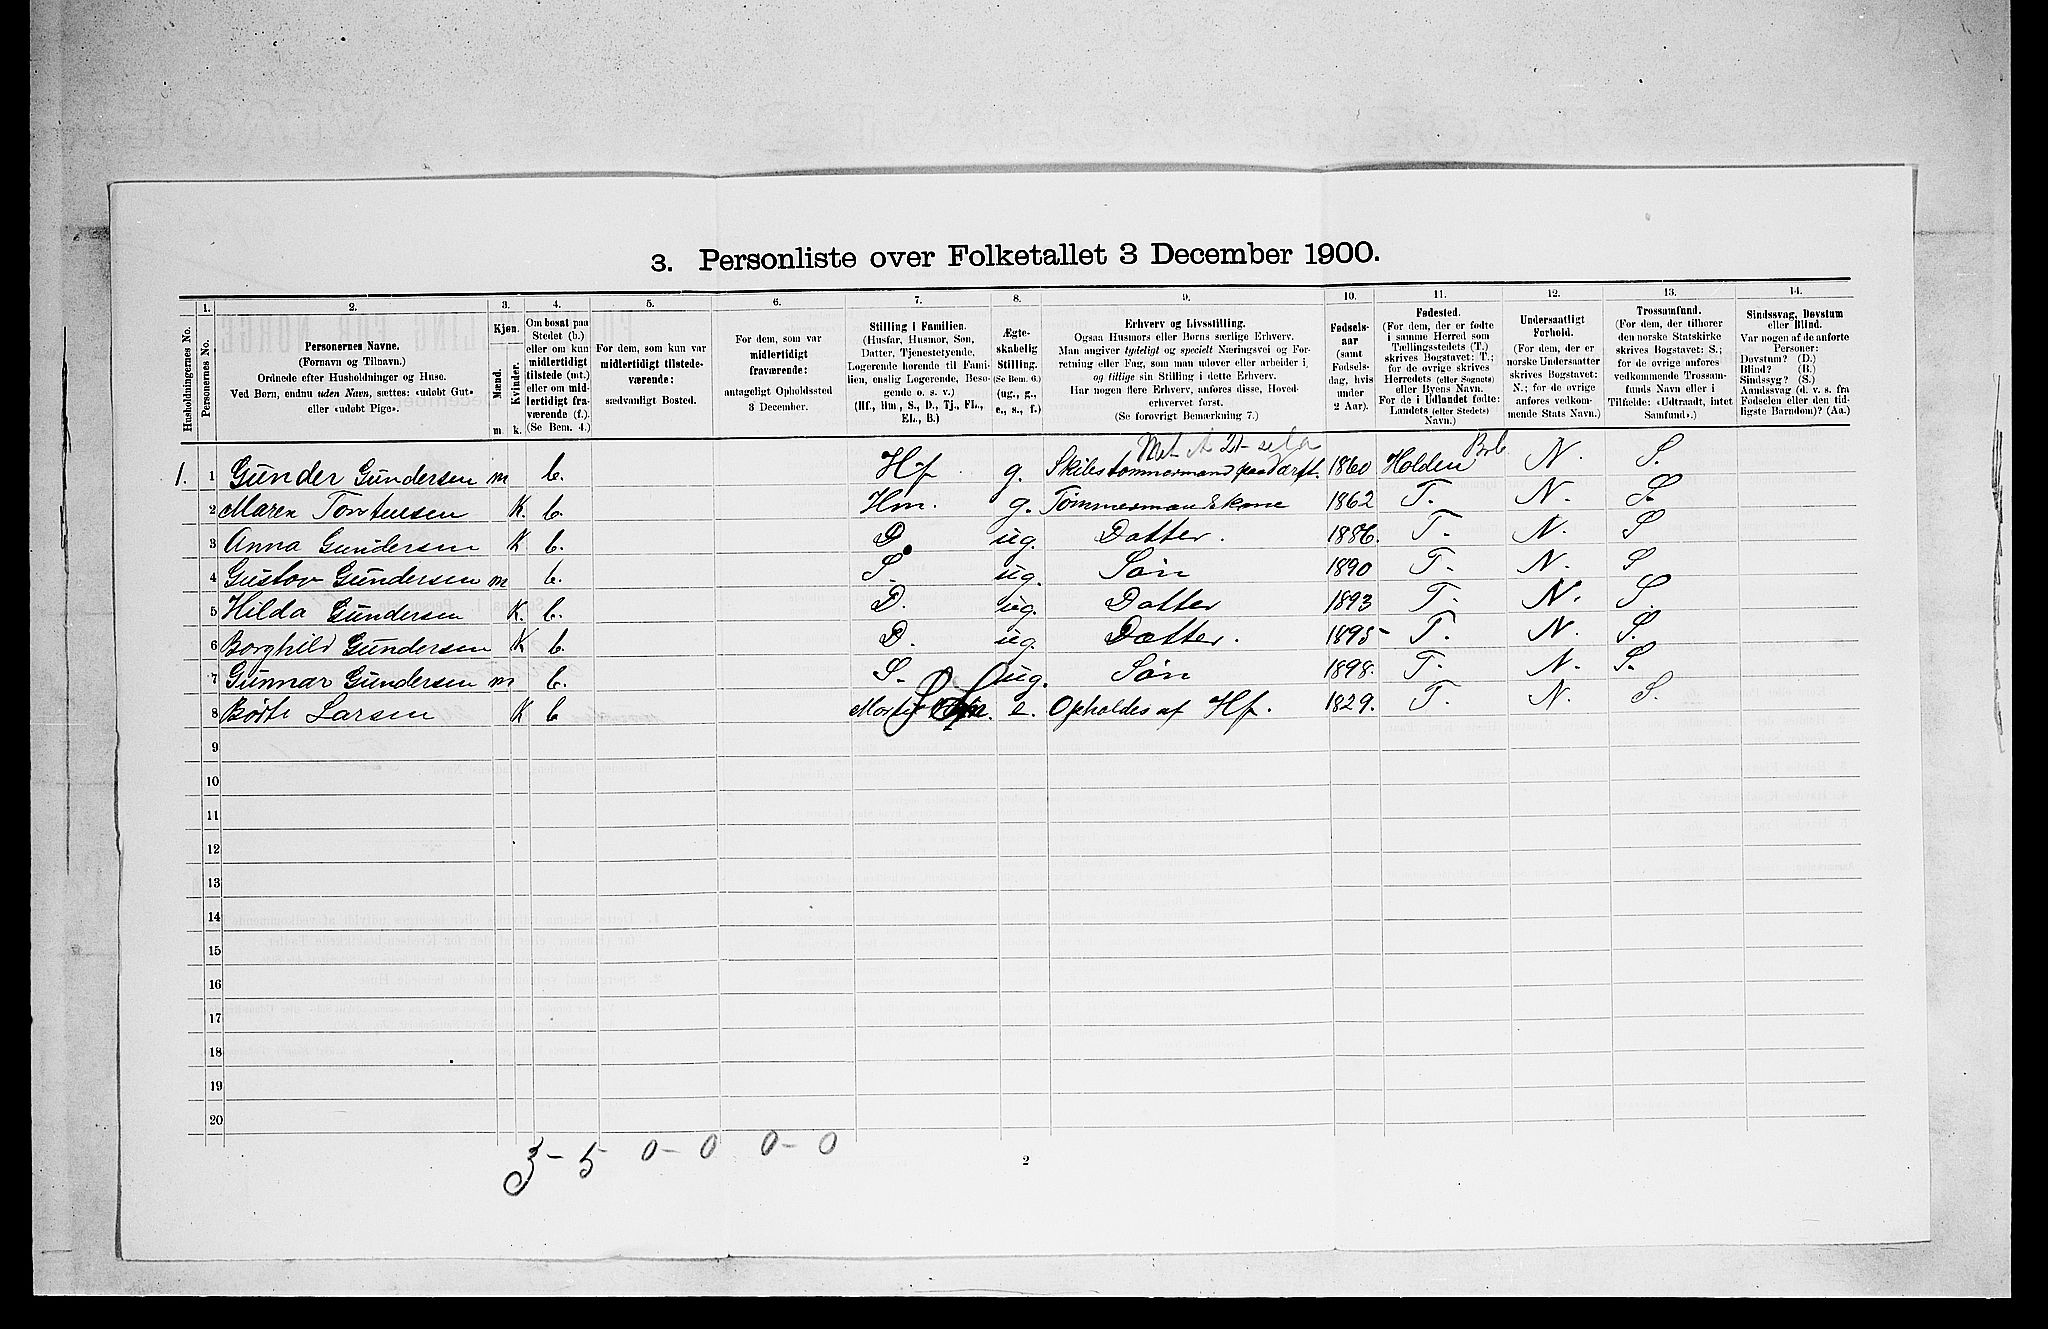 3. Personliste over Folketallet 3 December 1900.
1. 2. 3. 4. 5. 6. 7. 8. 9. 10. 11. 12. 13. 14.
Husholdningernes No.
Personernes No.
Personernes Navne.
(Fornavn og Tilnavn.)
Ordnede efter Husholdninger og Huse.
Ved Børn, endnu uden Navn, sættes: «udøbt Gut»
eller «udøbt Pige».
Kjøn.
Mænd. Kvinder.
m. k.
Om bosat paa
Stedet (b.)
eller om kun
midlertidigt
tilstede (mt.)
eller om mid-
lertidigt fra-
værende (f.).
(Se Bem. 4.)
For dem, som kun var
midlertidigt tilstede-
værende:
sædvanligt Bosted.
For dem, som var
midlertidigt
fraværende:
antageligt Opholdssted
3 December.
Stilling i Familien.
(Husfar, Husmor, Søn,
Datter, Tjenestetyende,
Logerende hørende til Fami-
lien, enslig Logerende, Besø-
gende o. s. v.)
(Hf., Hm., S., D., Tj., FL.,
EL., B.)
Ægte-
skabelig
Stilling.
(Se Bem. 6.)
(ug., g.,
e., s., f.)
Erhverv og Livsstilling.
Ogsaa Husmors eller Børns særlige Erhverv.
Man angiver tydeligt og specielt Næringsvei og For-
retning eller Fag, som man udøver eller arbeider i,
og tillige sin Stilling i dette Erhverv.
Har nogen flere Erhverv, anføres disse, Hoved-
erhvervet først.
(Se forøvrigt Bemærkning 7.)
Fødsels-
aar
(samt
Fødsels-
dag, hvis
under
2 Aar).
Fødested.
(For dem, der er fødte
i samme Herred som
Tællingsstedets (T.)
skrives Bogstavet: T.;
for de øvrige skrives
Herredets (eller Sognets)
eller Byens Navn.
For de i Udlandet fødte:
Landets (eller Stedets)
Navn.)
Undersaatligt
Forhold.
(For dem, der er
norske Undersaatter
skrives Bogstavet:
N.; for de øvrige
anføres vedkom-
mende Stats Navn.)
Trossamfund.
(For dem, der tilhører
den norske Statskirke
skrives Bogstavet: S.;
for de øvrige anføres
vedkommende Trossam-
funds Navn eller i
Tilfælde: «Udtraadt, intet
Samfund».)
Sindssvag, Døvstum
eller Blind.
Var nogen af de anførte
Personer:
Døvstum? (D.)
Blind? (B.)
Sindssyg? (S.)
Aandssvag (d. v. s. fra
Fødselen eller den tid-
ligste Barndom)? (Aa.)
1. 1 Gunder Gundersen m b. Hf. g. 1860 Holden N. S.
2 Maren K. b. Hm. g. Tømmermandskone 1862 T. N. S.
3 Anna Gundersen K b. D. ug. Datter. 1886. T. N. S
4 Gustav Gundersen m b. S. ug. Søn 1890 T. N. S
5 Hilda Gundersen K. b. D. ug. Datter 1893 T. N. S.
6 Borghild Gundersen K b. D. ug. Datter. 1895 T. N. S.
7 Gunnar Gundersen m b. S. ug. Søn 1898. T. N. S.
8 Børte Larsen K b e. Opholdes af Hf. 1829. T. N. S.
9
10
11
12
13
14
15
16
17
18
19
20
3 - 5 0 - 0 0 - 0
2